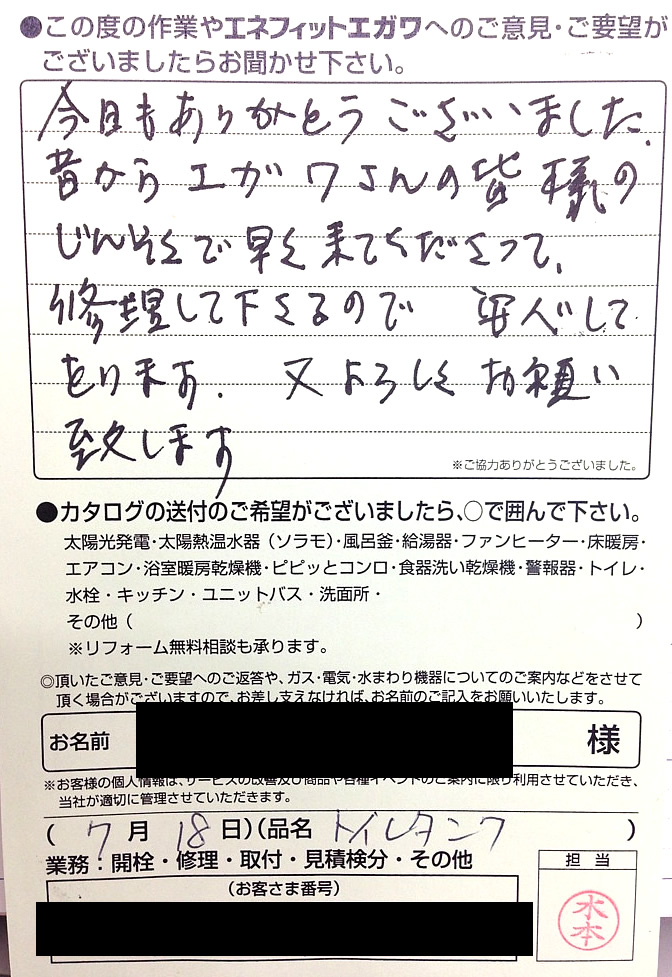 ●この度の作業やエネフィットエガワへのご意見・ご要望が
ございましたらお聞かせ下さい。
今日もありがとうございました.
昔からエガワさんの皆様の
じんそくで早く来てくださって、
修理して下さるので 安心して
をります. 又よろしくお願い
致します
※ご協力ありがとうございました。
●カタログの送付のご希望がございましたら、○で囲んで下さい。
太陽光発電・太陽熱温水器（ソラモ）・風呂釜・給湯器・ファンヒーター・床暖房・
エアコン・浴室暖房乾燥機・ピピッとコンロ・食器洗い乾燥機・警報器・トイレ・
水栓・キッチン・ユニットバス・洗面所・
その他（ ）
※リフォーム無料相談も承ります。
◎頂いたご意見・ご要望へのご返答や、ガス・電気・水まわり機器についてのご案内などをさせて
頂く場合がございますので、お差し支えなければ、お名前のご記入をお願いいたします。
お名前 様
※お客様の個人情報は、サービスの改善及び商品や各種イベントのご案内に限り利用させていただき、
当社が適切に管理させていただきます。
( 7月 18日)(品名 トイレタンク )
業務：開栓・修理・取付・見積検分・その他
担当
（お客さま番号）
水本